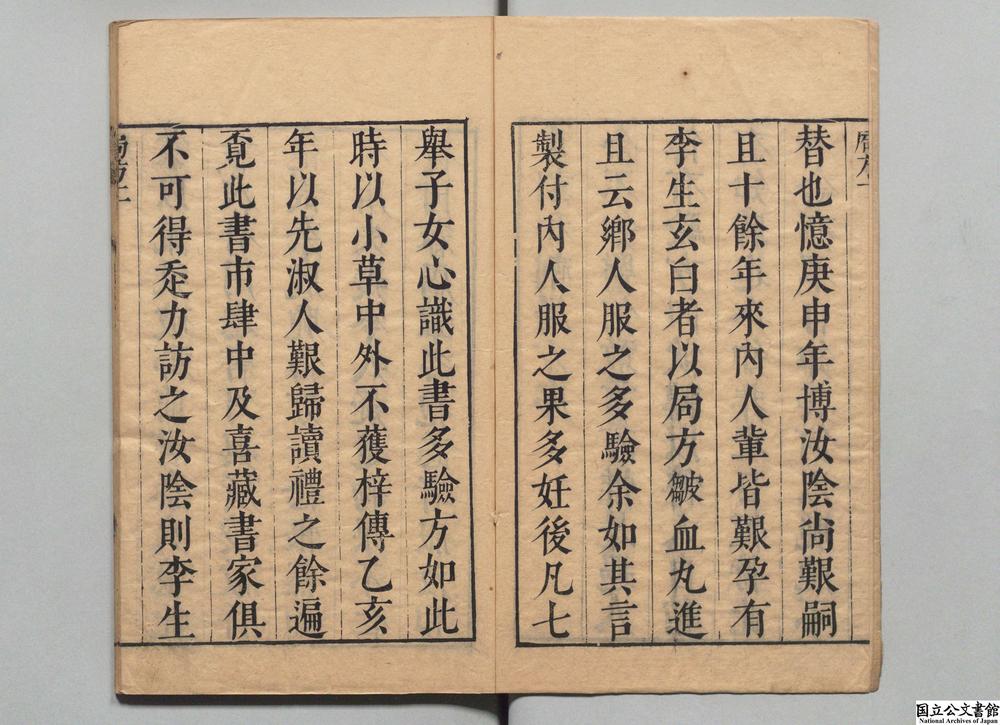 替也憶庚申年博汝陰尚艱嗣
且十餘年來內人輩皆艱孕有
李生玄白者以局方皺血丸進
且云鄉人服之多驗余如其言
製付內人服之果多妊後凡七
舉子女心識此書多驗方如此
時以小草中外不獲梓傳乙亥
年以先淑人艱歸讀禮之餘遍
覔此書市肆中及喜藏書家俱
不可得亟力訪之汝陰則李生
国立公文書館
National Archives of Japan